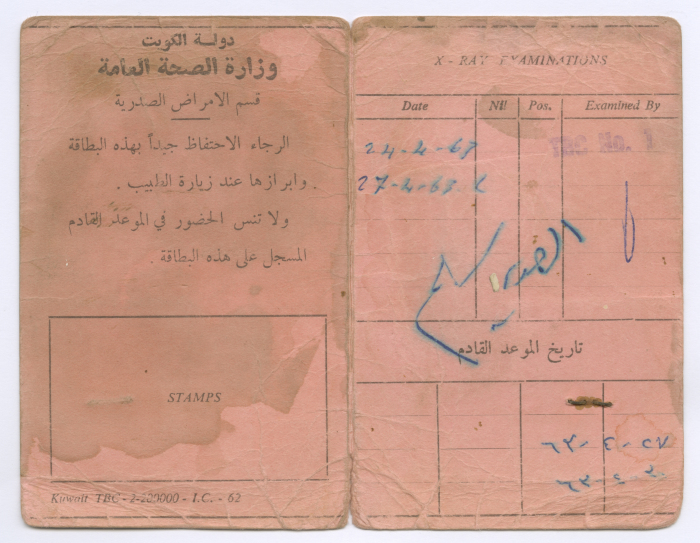 دولة الكويت
وزارة الصحة العامة
قسم الامراض الصدرية
الرجاء الاحتفاظ جيداً بهذه البطاقة
وابرازها عند زيارة الطبيب .
ولا تنس الحضور في الموعد القادم
المسجل على هذه البطاقة .
STAMPS
Kuwait TBC - 2-200000 - I.C. - 62
X - RAY EXAMINATIONS
Date Nil Pos. Examined By
24-4-63 TBC No. 1
27-4-63
تاريخ الموعد القادم
٢٧-٤-٦٣